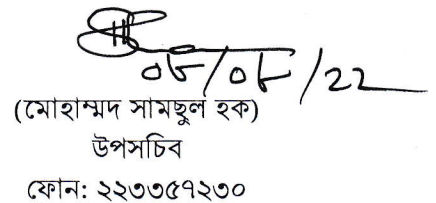 ০৮/০৮/২২
(মোহাম্মদ সামছুল হক)
উপসচিব
ফোন: ২২৩৩৫৭২৩০